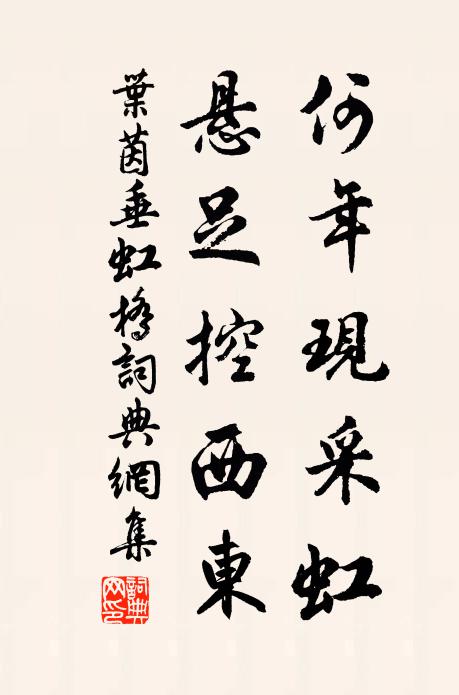 何年現采虹
懸足控西東
葉茵垂虹橋詞典網集
詞典网印